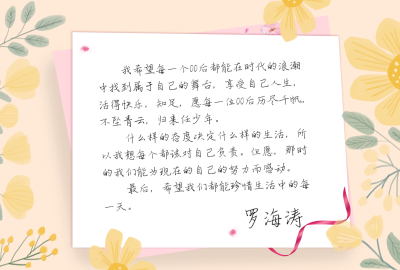 我希望每一个00后都能在时代的浪潮
中找到属于自己的舞台，享受自己人生，
活得快乐，知足，愿每一位00后历尽千帆，
不坠青云，归来任少年。
什么样的态度决定什么样的生活，所
以我想每个都该对自己负责。但愿，那时
的我们能为现在的自己的努力而感动。
最后，希望我们都能珍惜生活中的每
一天。
罗海涛